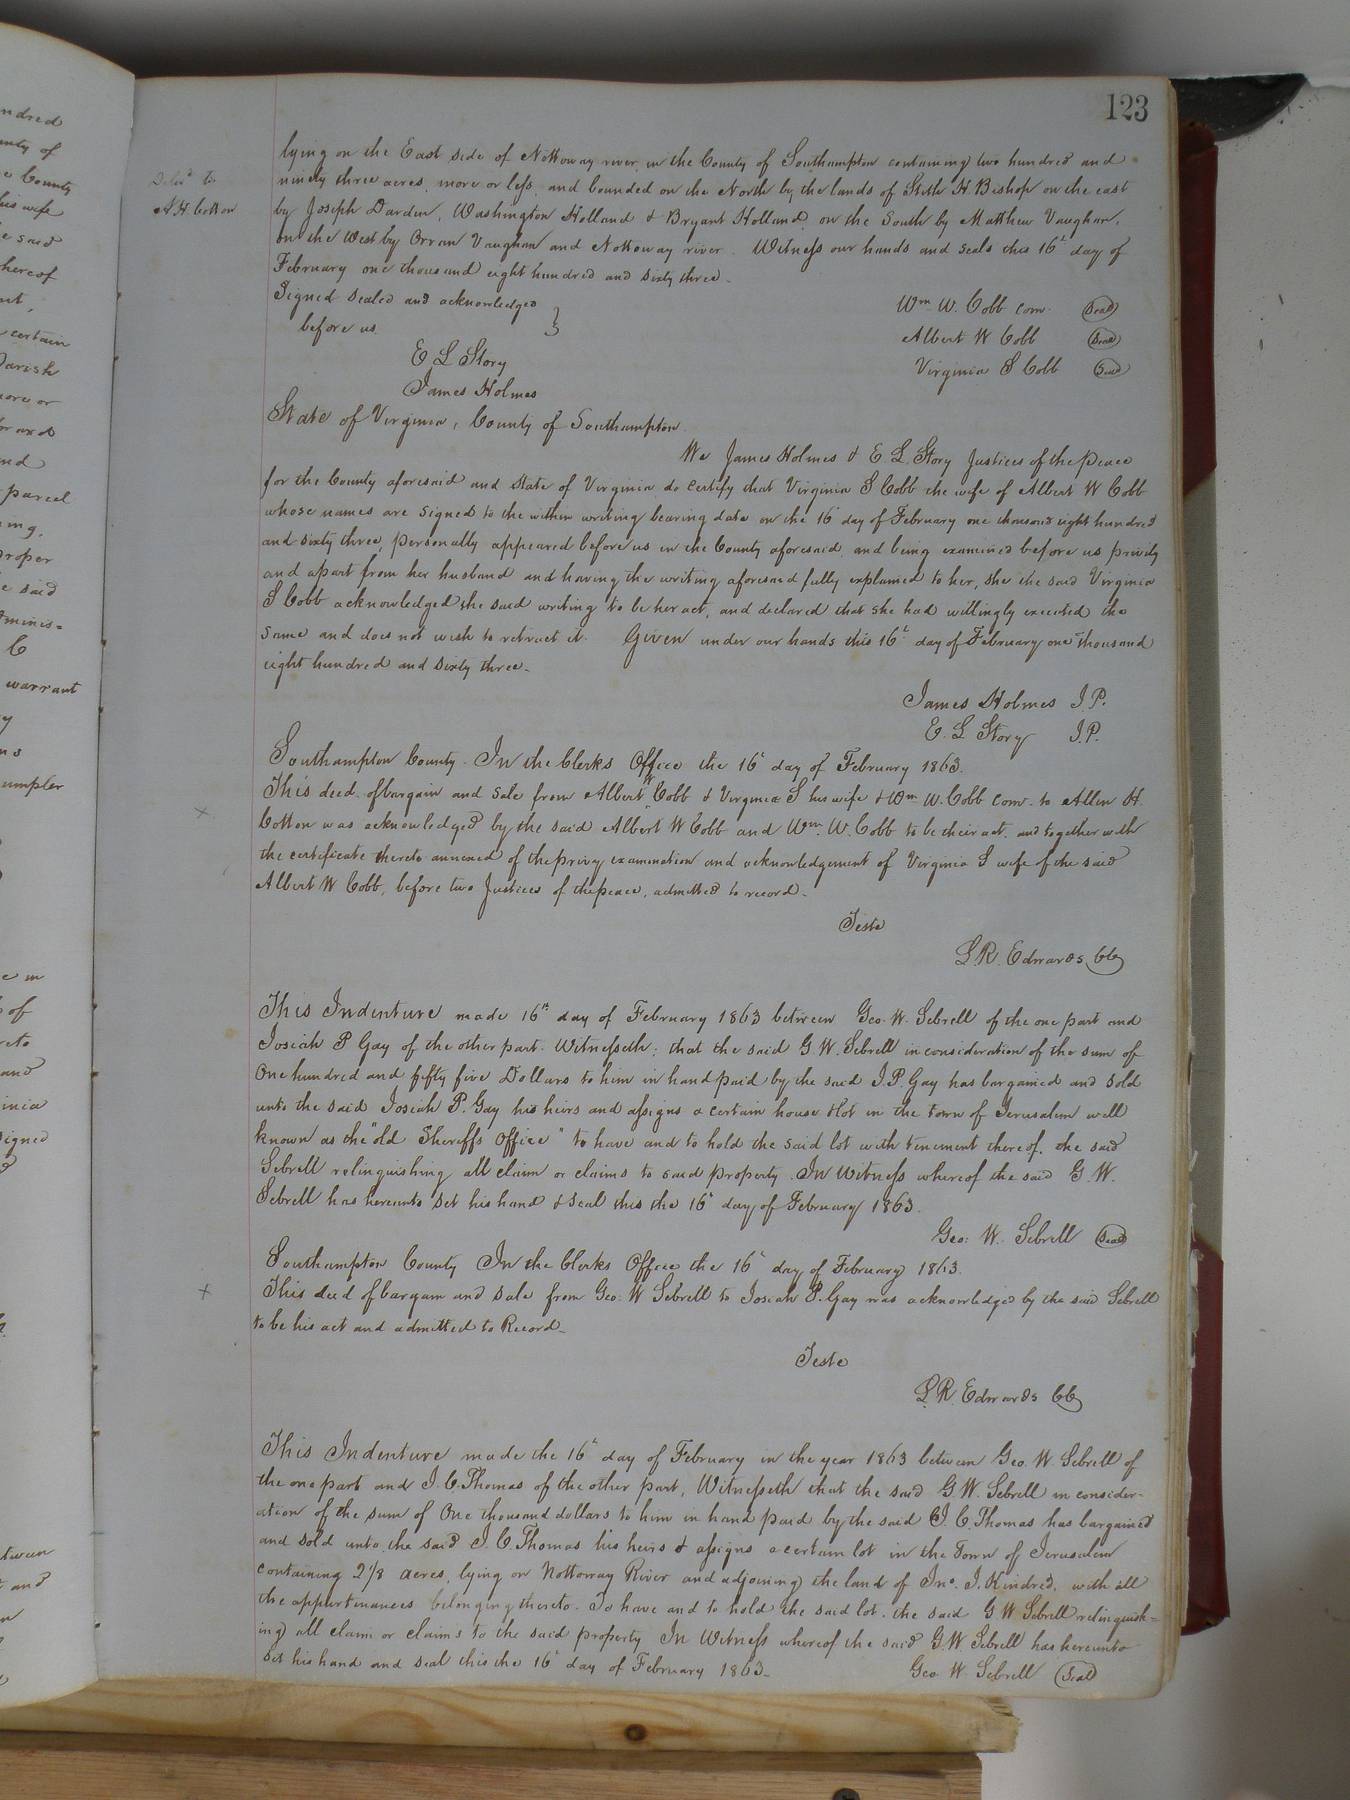 123
lying on the East side of Nottoway river, in the County of Southampton containing two hundred and
ninety three acres, more or less, and bounded on the North by the lands of Stith H Bishop on the east
by Joseph Darden, Washington Holland & Bryant Holland, on the South by Matthew Vaughan,
on the West by Orran Vaughan and Nottoway river. Witness our hands and seals this 16t day of
February one thousand eight hundred and sixty three.
Deld to
A H Cotton
Signed Sealed and acknowledged
before us
E L Story
James Holmes
Wm W. Cobb com. Seal
Albert W Cobb Seal
Virginia S Cobb Seal
State of Virginia, County of Southampton
We James Holmes & E. L. Story Justices of the peace
for the County aforesaid and State of Virginia do certify that Virginia S Cobb the wife of Albert W Cobb
whose names are signed to the within writing bearing date on the 16t day of February one thousand eight hundred
and sixty three, personally appeared before us in the County aforesaid, and being examined before us privily
and apart from her husband and having the writing aforesaid fully explained to her, she the said Virginia
S Cobb acknowledged the said writing to be her act, and declared that she had willingly executed the
same and does not wish to retract it. Given under our hands this 16t day of February one thousand
eight hundred and sixty three.
James Holmes J.P.
E. L Story J.P.
Southampton County. In the Clerks Office the 16t day of February 1863.
This deed of bargain and sale from Albert W Cobb & Virginia S his wife & Wm W. Cobb com. to Allen H.
Cotton was acknowledged by the said Albert W Cobb and Wm. W. Cobb to be their act, and together with
the certificate thereto annexed of the privy examination and acknowledgement of Virginia S wife of the said
Albert W Cobb, before two Justices of the peace, admitted to record.
Teste
L. R. Edwards CC
This Indenture made 16th day of February 1863 between Geo. W. Sebrell of the one part and
Josiah P Gay of the other part. Witnesseth: that the said G. W. Sebrell in consideration of the sum of
One hundred and fifty five Dollars to him in hand paid by the said J. P. Gay has bargained and sold
unto the said Josiah P. Gay his heirs and assigns a certain house & lot in the town of Jerusalem well
known as the "old Sheriffs office" to have and to hold the said lot with tenement thereof. the said
Sebrell relinquishing all claim or claims to said property. In Witness whereof the said G. W.
Sebrell has hereunto set his hand & seal this the 16t day of February 1863.
Geo: W. Sebrell Seal
Southampton County In the Clerks Office the 16t day of February 1863.
This deed of bargain and sale from Geo: W Sebrell to Josiah P. Gay was acknowledged by the said Sebrell
to be his act and admitted to Record.
Teste
L R. Edwards CC
This Indenture made the 16t day of February in the year 1863 between Geo. W. Sebrell of
the one part and J. C. Thomas of the other part, Witnesseth that the said G. W. Sebrell in consider-
ation of the sum of One thousand dollars to him in hand paid by the said J. C. Thomas has bargained
and sold unto the said J. C. Thomas his heirs & assigns a certain lot in the Town of Jerusalem
containing 2 1/8 acres, lying on Nottoway River and adjoining the land of Jno. J. Kindred, with all
the appurtenances belonging thereto. To have and to hold the said lot, the said G W Sebrell relinquish=
ing all claim or claims to the said property In Witness whereof the said G. W Sebrell has hereunto
set his hand and seal this the 16t day of February 1863.
Geo W. Sebrell Seal